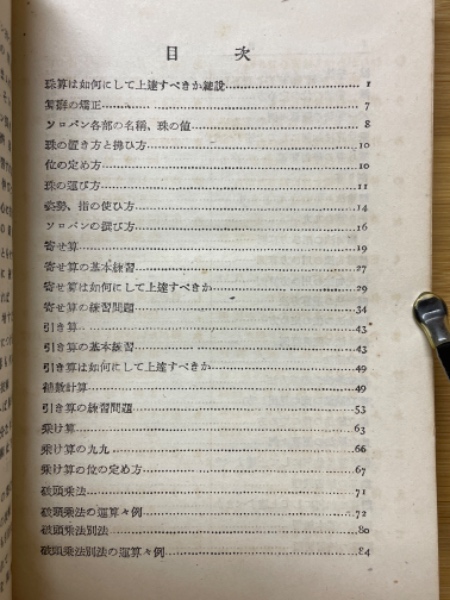 目次
珠算は如何にして上達すべきか総説 1
習癖の矯正 7
ソロバン各部の名称、珠の値 8
珠の置き方と拂ひ方 10
位の定め方 10
珠の運び方 11
姿勢、指の使ひ方 14
ソロバンの選び方 16
寄せ算 19
寄せ算の基本練習 27
寄せ算は如何にして上達すべきか 29
寄せ算の練習問題 34
引き算 43
引き算の基本練習 43
引き算は如何にして上達すべきか 49
補数計算 49
引き算の練習問題 53
乗け算 63
乗け算の九九 66
乗け算の位の定め方 67
破頭乗法 71
破頭乗法の運算々例 72
破頭乗法別法 80
破頭乗法別法の運算々例 84